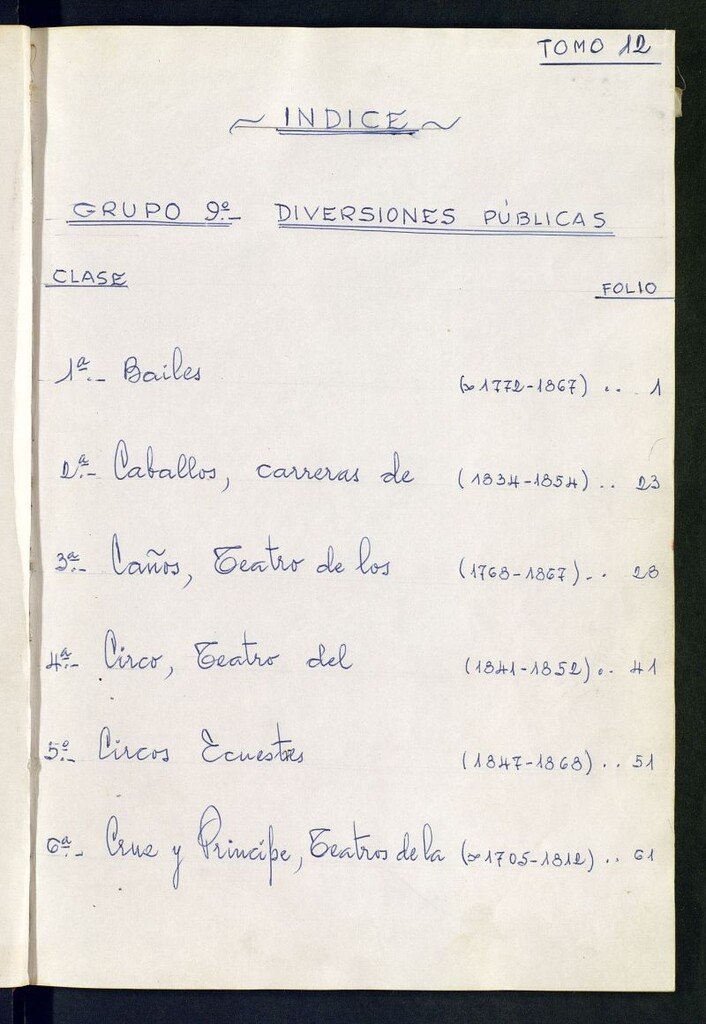 TOMO 12
~ INDICE ~
GRUPO 9º.- DIVERSIONES PÚBLICAS
CLASE FOLIO
1ª.- Bailes (∞1772-1867) .. 1
2ª.- Caballos, carreras de (1834-1854) .. 23
3ª.- Caños, Teatro de los (1768-1867) .. 28
4ª.- Circo, Teatro del (1841-1852) .. 41
5º.- Circos Ecuestres (1847-1868) .. 51
6ª.- Cruz y Príncipe, Teatros de la (∞1705-1812) .. 61